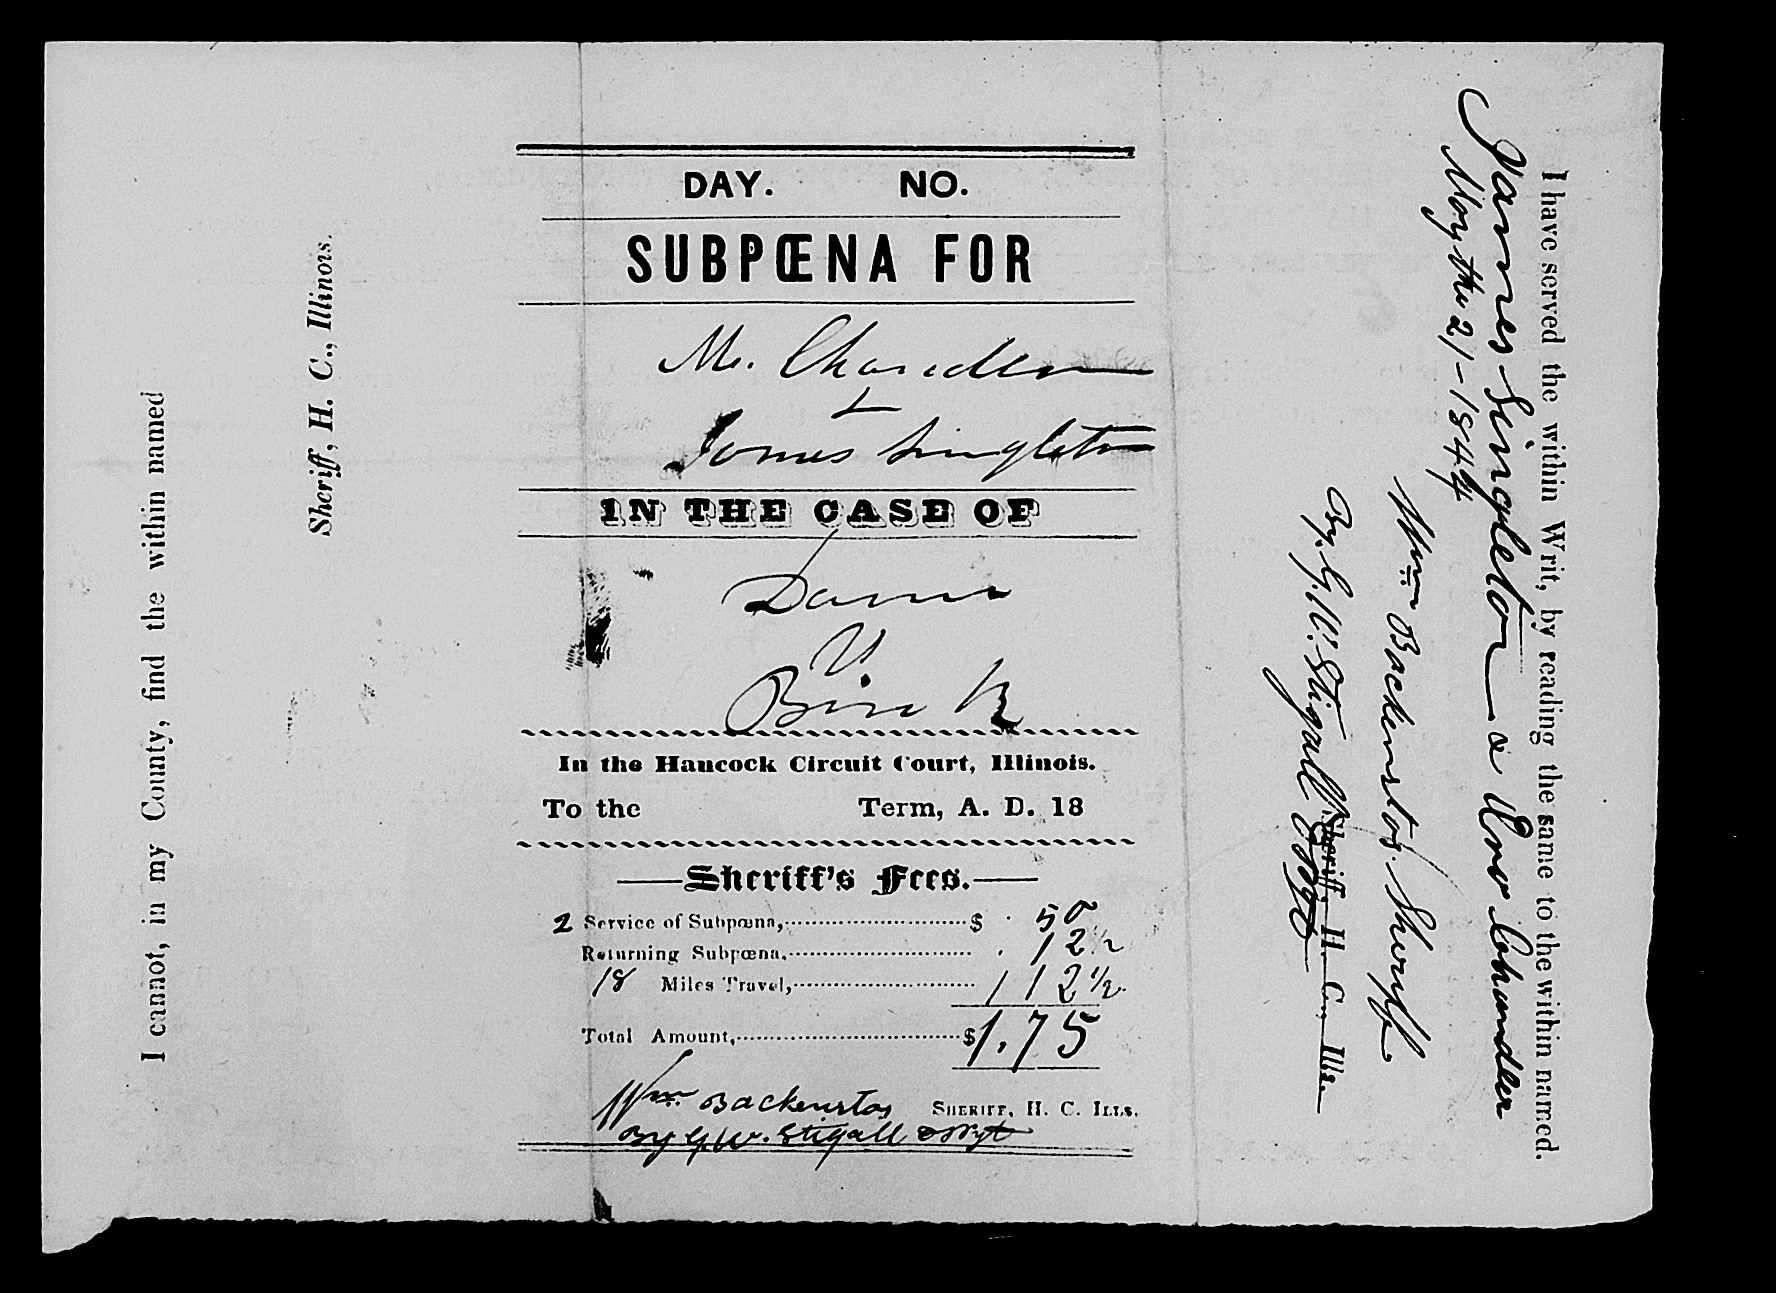 I cannot, in my County, find the within named
Sheriff, H. C., Illinois.
DAY. NO.
SUBPŒNA FOR
Mr. Chandler
&
James Singleton
IN THE CASE OF
Davis
v
In the Hancock Circuit Court, Illinois.
To the Term, A. D. 18
Sheriff's Fees.
2 Service of Subpœna, $ . 50
Returning Subpœna, . 12 1/2
18 Miles Travel, 1 12 1/2
Total Amount, $1.75
Wm Backenstos SHERIFF, H. C. ILLS.
By G. W. Stigall Dpt
I have served the within Writ, by reading the same to the within named.
James Singleton a Chandler
May the 21 - 1844
Wm Backenstos Sheriff
By. G. W. Stigall Dpt
Sheriff, H. C., Ills.